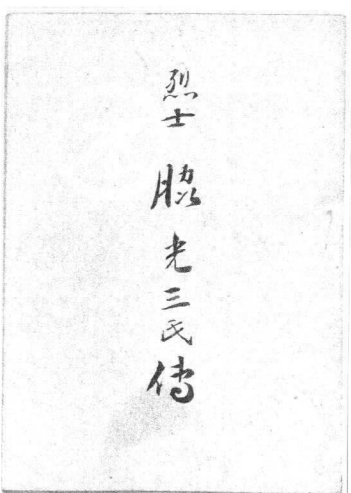 烈士 脇光三氏傳